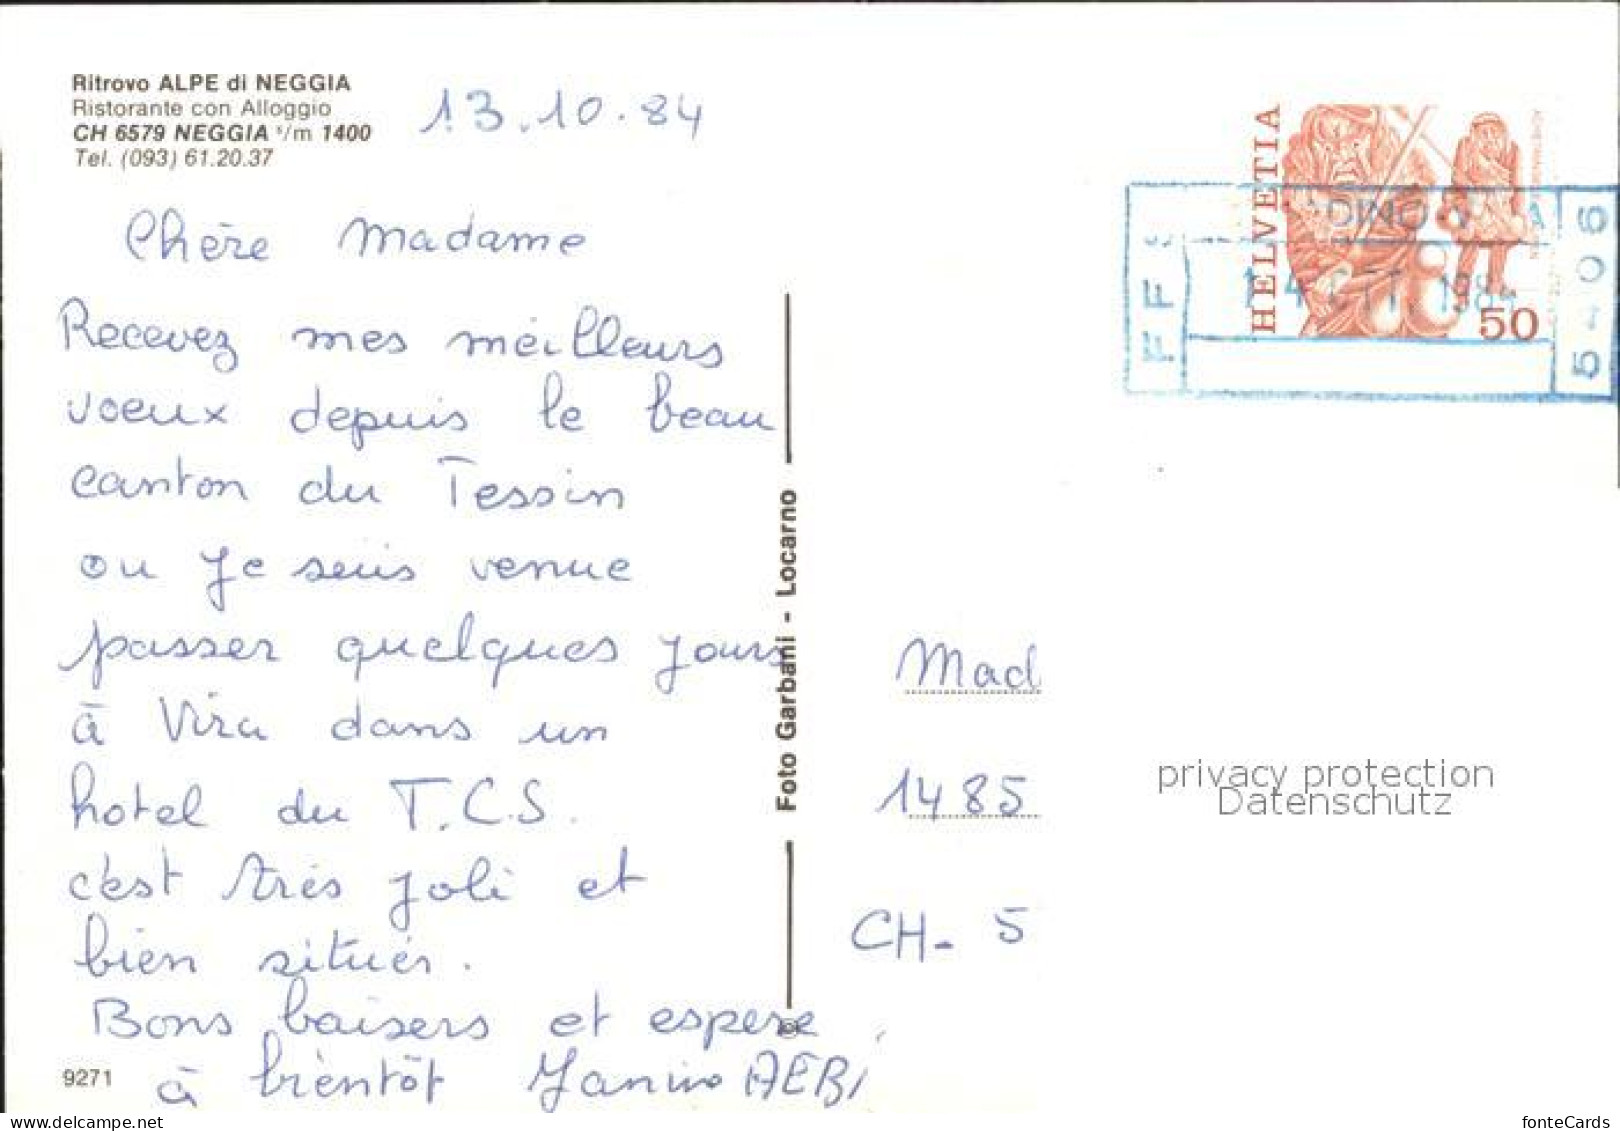 Ritrovo ALPE di NEGGIA
Ristorante con Alloggio
CH 6579 NEGGIA s/m 1400
Tel. (093) 61.20.37
13.10.84
HELVETIA
50
14 OTT 1984
FFS
5406
Chère Madame
Recevez mes meilleurs
voeux depuis le beau
canton du Tessin
ou je suis venue
passer quelques jours
à Vira dans un
hotel du T.C.S.
c'est très joli et
bien situér.
Bons baisers et espere
à bientôt Janino AEBI
9271
Foto Garbani - Locarno
Mad
1485
CH-5
privacy protection
Datenschutz
www.delcampe.net
fonteCards